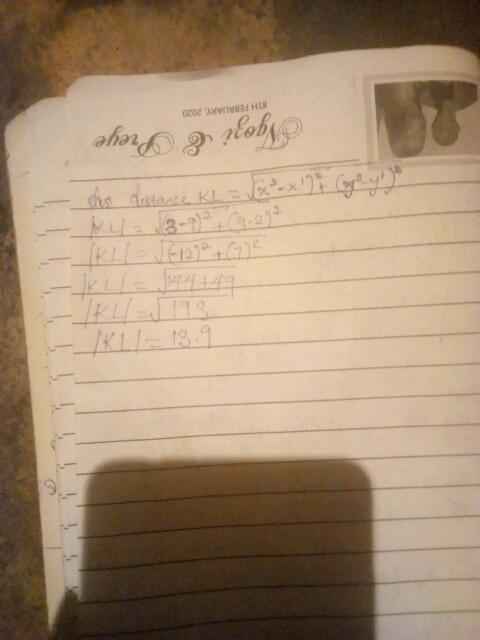 Ngozi & Preye
8TH FEBRUARY, 2020
distance KL = √(x² - x¹)² + (y² - y¹)²
|KL| = √(3-9)² + (9-2)²
|KL| = √(-12)² + (7)²
|KL| = √144+49
|KL| = √193
|KL| = 13.9